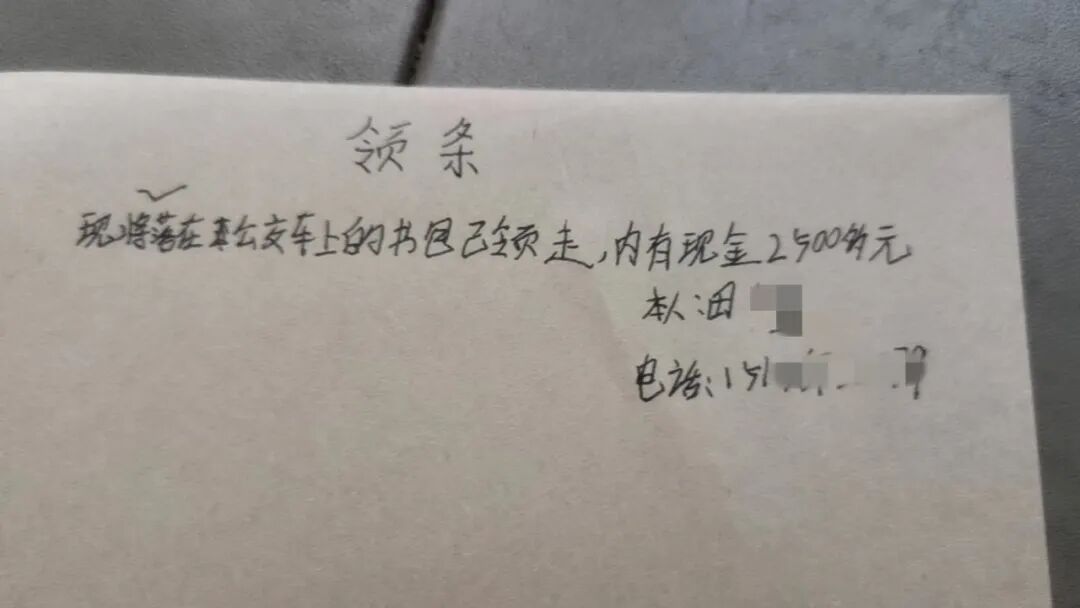 领条
现将落在公交车上的书包已领走,内有现金2500多元
本人:田
电话:151 79